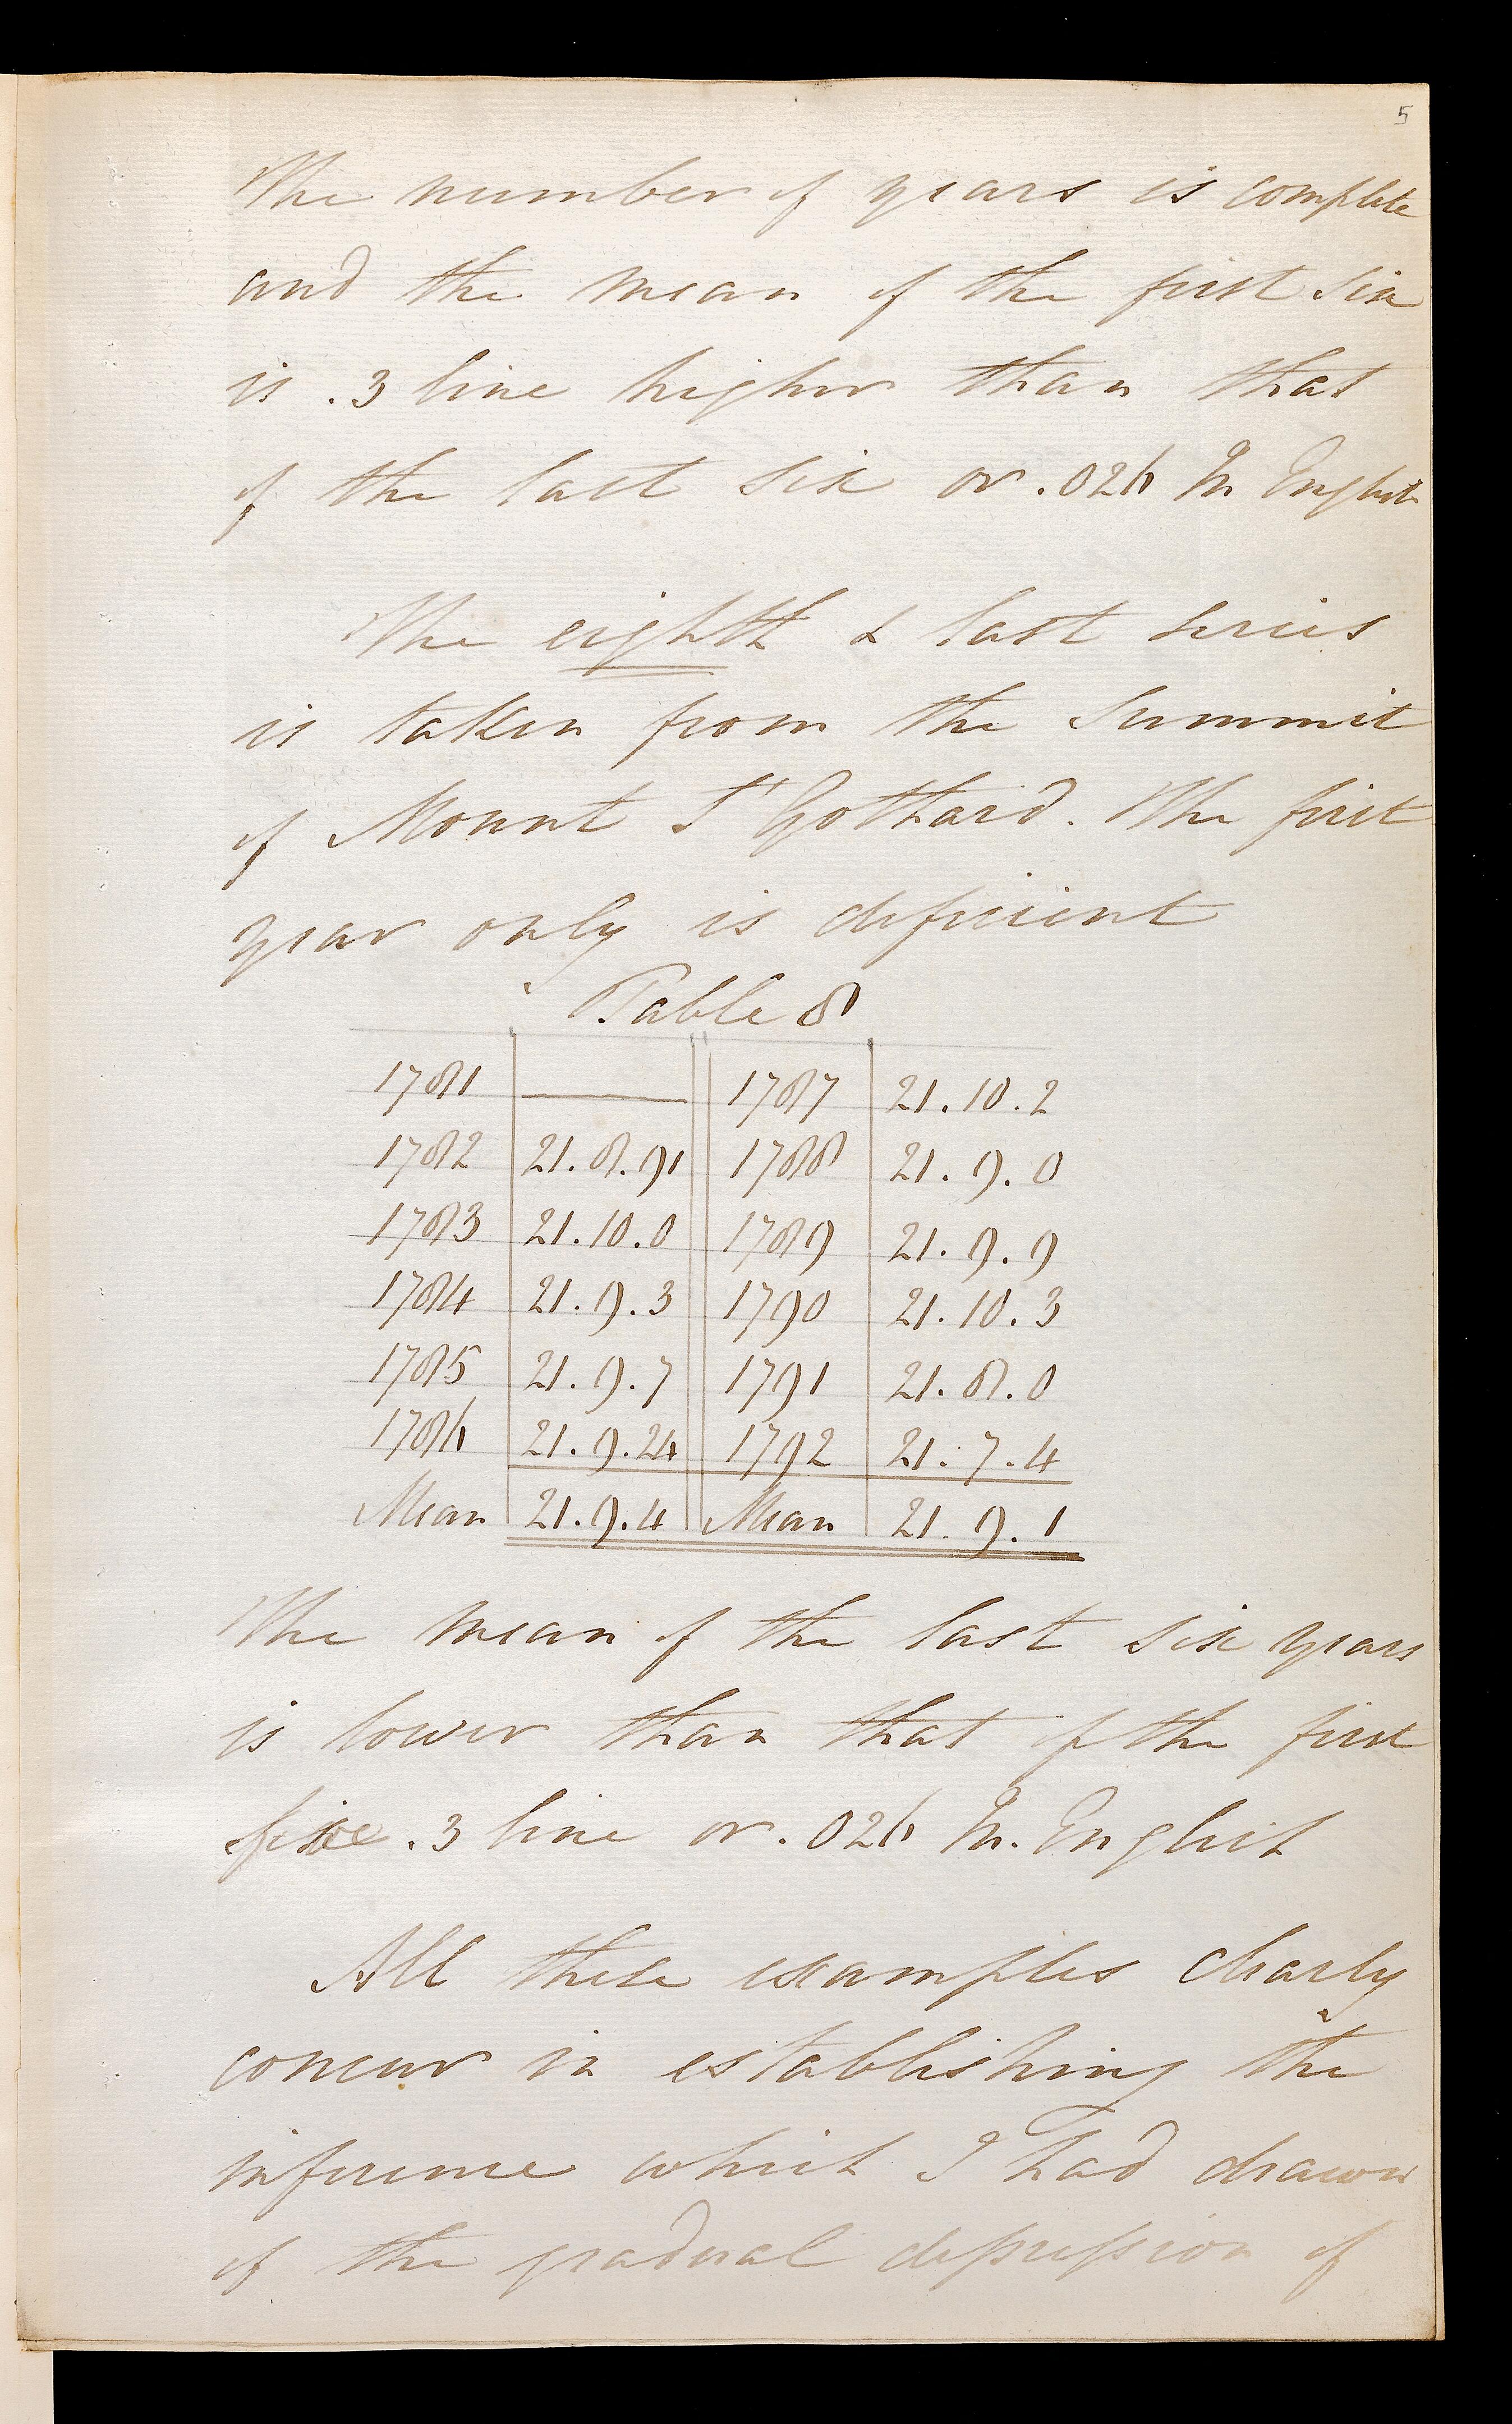 5
The number of years is complete
and the mean of the first six
is .3 line higher than that
of the last six or .026 In English
The eighth & last series
is taken from the Summit
of Mount St Gothard. The first
year only is deficient
Table 8
1781 | —— | 1787 | 21.10.2
1782 | 21.8.91 | 1788 | 21.9.0
1783 | 21.10.0 | 1789 | 21.9.9
1784 | 21.9.3 | 1790 | 21.10.3
1785 | 21.9.7 | 1791 | 21.8.0
1786 | 21.9.24 | 1792 | 21.7.4
Mean | 21.9.4 | Mean | 21.9.1
The mean of the last six years
is lower than that of the first
five .3 line or .026 In. English
All these examples clearly
concur in establishing the
inference which I had drawn
of the gradual depression of